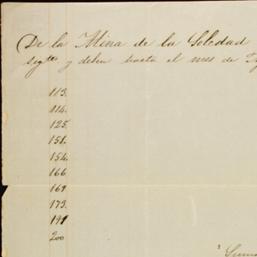 De la Mina de la Soledad
sigtes y deben hasta el mes de
113.
114.
125.
151.
154.
166
169
173.
191
200